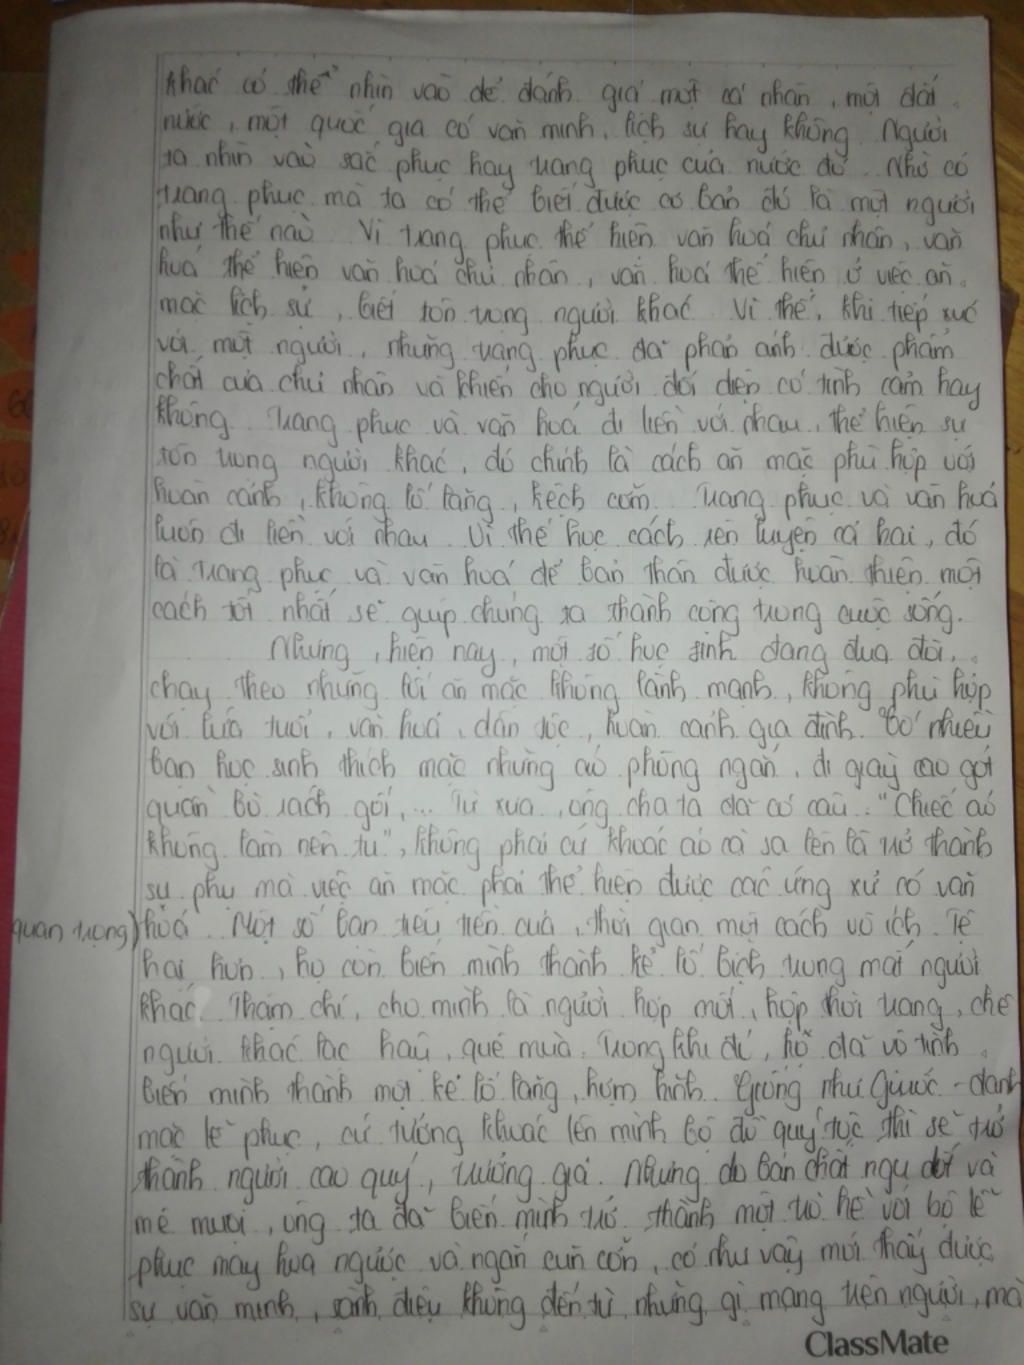 khác có thể nhìn vào để đánh giá một cá nhân, một đất
nước, một quốc gia có văn minh, lịch sự hay không. Người
ta nhìn vào sắc phục hay trang phục của nước đó. Nhờ có
trang phục mà ta có thể biết được cơ bản đó là một người
như thế nào. Vì trang phục thể hiện văn hoá chủ nhân, văn
hoá thể hiện văn hoá chủ nhân, văn hoá thể hiện ở việc ăn
mặc lịch sự, biết tôn trọng người khác. Vì thế, khi tiếp xúc
với một người, những trang phục đã phản ánh được phẩm
chất của chủ nhân và khiến cho người đối diện có tình cảm hay
không. Trang phục và văn hoá đi liền với nhau, thể hiện sự
tôn trọng người khác, đó chính là cách ăn mặc phù hợp với
hoàn cảnh, không lố lăng, kệch cỡm. Trang phục và văn hoá
luôn đi liền với nhau. Vì thế học cách rèn luyện cả hai, đó
là trang phục và văn hoá để bản thân được hoàn thiện một
cách tốt nhất sẽ giúp chúng ta thành công trong cuộc sống.
Nhưng, hiện nay, một số học sinh đang đua đòi,
chạy theo những lối ăn mặc không lành mạnh, không phù hợp
với lứa tuổi, văn hoá, dân tộc, hoàn cảnh gia đình. Có nhiều
bạn học sinh thích mặc những áo phông ngắn, đi giày cao gót
quần bò rách gối,... Từ xưa, ông cha ta đã có câu: "Chiếc áo
không làm nên tu", không phải cứ khoác áo cà sa lên là trở thành
sư phụ mà việc ăn mặc phải thể hiện được các ứng xử có văn
quan trọng) hoá. Một số bạn tiêu tiền của, thời gian một cách vô ích. Tệ
hại hơn, họ còn biến mình thành kẻ lố bịch trong mắt người
khác? Thậm chí, cho mình là người hợp mốt, hợp thời trang, chê
người khác lạc hậu, quê mùa. Trong khi đó, họ đã vô tình
biến mình thành một kẻ lố lăng, hợm hĩnh. Giống như Giuốc-đanh
mặc lễ phục, cứ tưởng khoác lên mình bộ đồ quý tộc thì sẽ trở
thành người cao quý, trưởng giả. Nhưng do bản chất ngu dốt và
mê muội, ông ta đã biến mình trở thành một trò hề với bộ lễ
phục may hoa ngược và ngắn cũn cỡn, có như vậy mới thấy được
sự văn minh, sành điệu không đến từ những gì mang trên người, mà
ClassMate